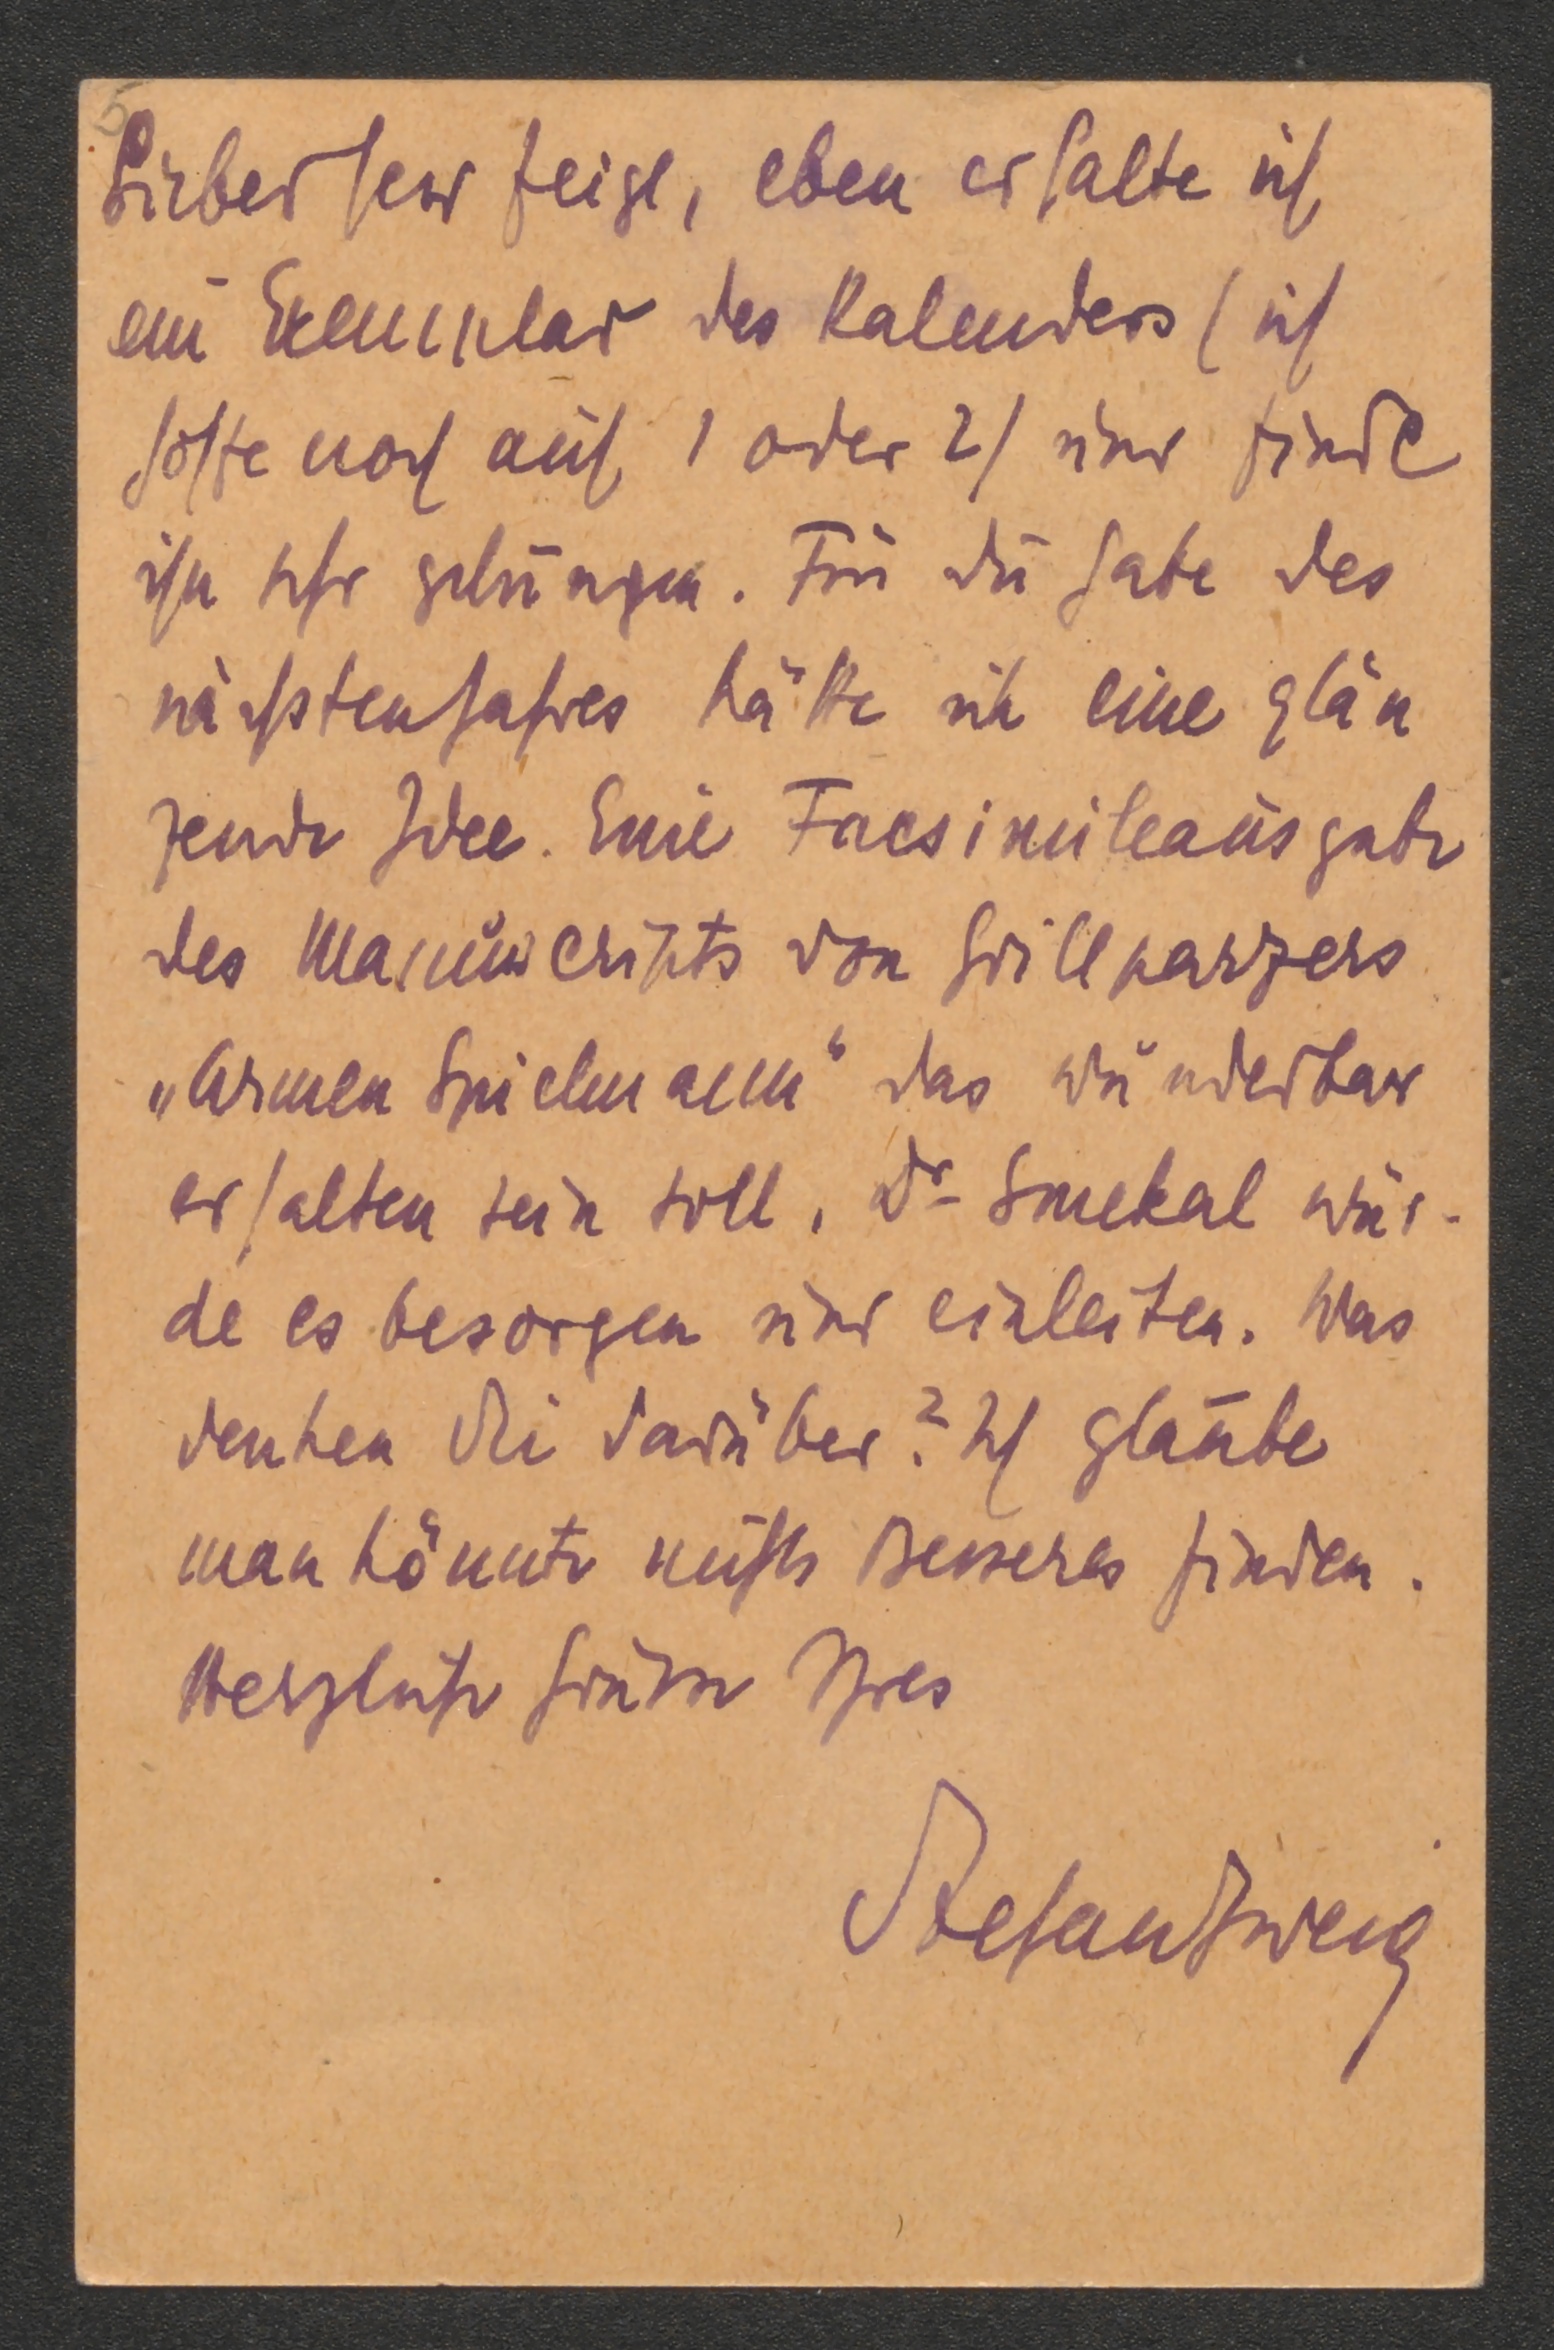 5
Lieber Herr Feigl, eben erhalte ich
ein Exemplar des Kalenders (ich
hoffe noch auf 1 oder 2) und finde
ihn sehr gelungen. Für die Gabe des
nächsten Jahres hätte ich eine glän
zende Idee. Eine Facsimileausgabe
des Manuscripts von Grillparzers
„Armen Spielmann“ das wunderbar
erhalten sein soll. Dr Smekal wür-
de es besorgen und einleiten. Was
denken Sie darüber? Ich glaube
man könnte nichts Besseres finden.
Herzliche Grüsse Ihres
Stefan Zweig